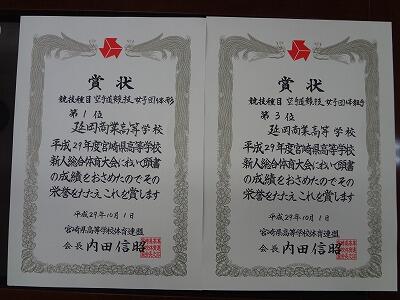 賞状
競技種目 空手道競技 女子団体形
第1位
延岡商業高等学校
平成29年度宮崎県高等学校
新人総合体育大会において頭書
の成績をおさめたのでその
栄誉をたたえこれを賞します
平成29年10月1日
宮崎県高等学校体育連盟
会長 内田信昭
賞状
競技種目 空手道競技 女子団体組手
第3位
延岡商業高等学校
平成29年度宮崎県高等学校
新人総合体育大会において頭書
の成績をおさめたのでその
栄誉をたたえこれを賞します
平成29年10月1日
宮崎県高等学校体育連盟
会長 内田信昭